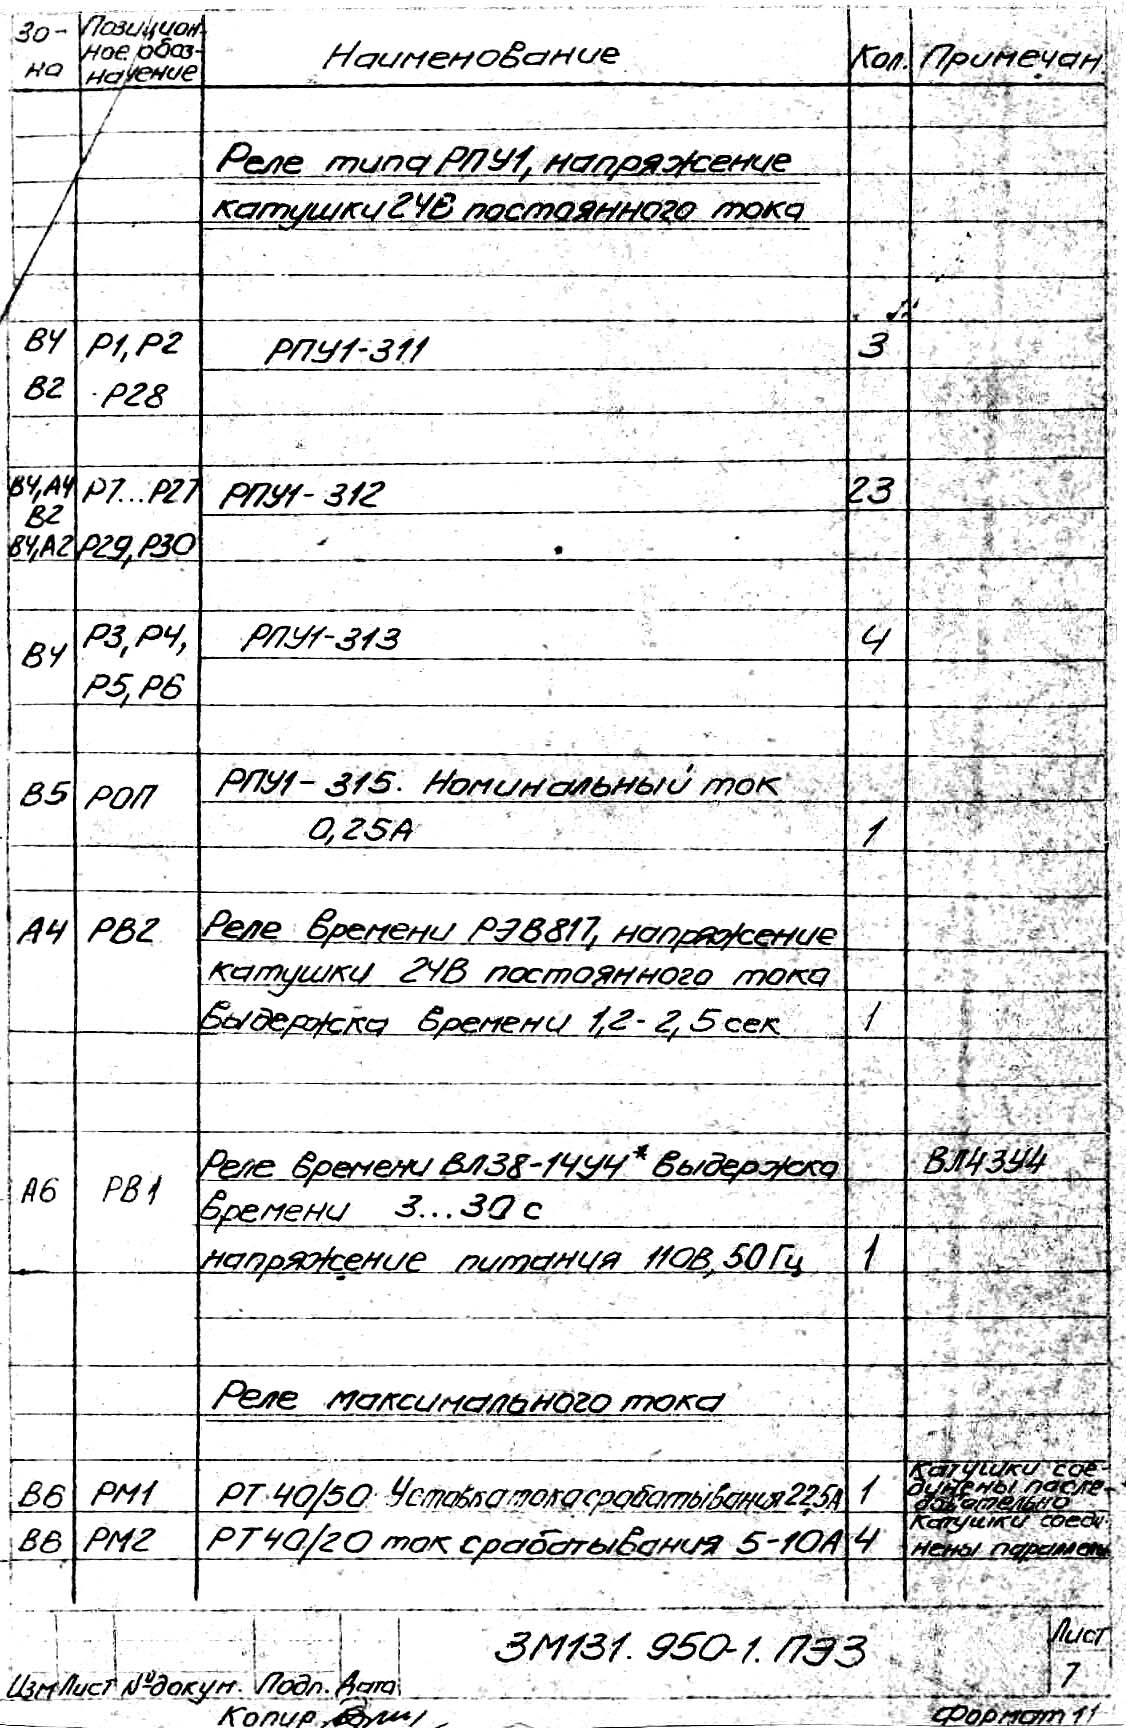 Зо- Позицион- Наименование Кол. Примечан.
на ное обоз-
начение
Реле типа РПУ1, напряжение
катушки 24В постоянного тока
В4 Р1, Р2 РПУ1-311 3
В2 Р28
В4, А4 Р7...Р27 РПУ1-312 23
В2
В4, А2 Р29, Р30
В4 Р3, Р4, РПУ1-313 4
Р5, Р6
В5 РОП РПУ1-315. Номинальный ток
0,25А 1
А4 РВ2 Реле времени РЭВ817, напряжение
катушки 24В постоянного тока
Выдержка времени 1,2-2,5 сек 1
А6 РВ1 Реле времени ВЛ38-14У4* Выдержка ВЛ43У4
времени 3...30 с
напряжение питания 110В, 50 Гц 1
Реле максимального тока
В6 РМ1 РТ 40/50 Уставка тока срабатывания 22,5А 1 Катушки сое-
динены после-
довательно
В6 РМ2 РТ 40/20 ток срабатывания 5-10А 4 Катушки соеди-
нены паралель
3М131. 950-1. ПЭ3 Лист
7
Изм Лист № докум. Подп. Дата
Копир. Формат 11